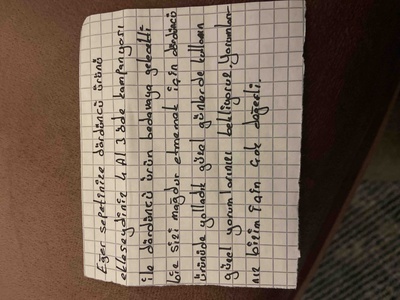 Eğer sepetinize dördüncü ürünü
ekleseydiniz 4 Al 3 öde kampanyası
ile dördüncü ürün bedavaya gelecekti
biz sizi mağdur etmemek için dördüncü
ürünüde yolladık güzel günlerde kullanın
güzel yorumlarınızı bekliyoruz. yorumlar-
nız bizim için çok değerli.